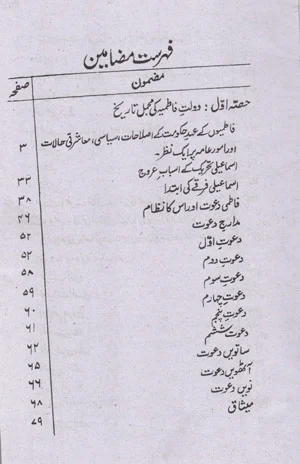 فہرست مضامین
مضمون صفحہ
حصہ اوّل : دولتِ فاطمیہ کی مجمل تاریخ
فاطمیوں کے عہدِ حکومت کے اصلاحات ، سیاسی ، معاشرتی حالات
اور امورِ عامہ پر ایک نظر۔ ۳
اسماعیلی تحریک کے اسبابِ عروج
اسماعیلی فرقے کی ابتدا ۳۳
فاطمی دعوت اور اس کا نظام ۳۸
مدارجِ دعوت ۴۶
دعوتِ اوّل ۵۲
دعوتِ دوم ۵۲
دعوتِ سوم ۵۸
دعوتِ چہارم ۵۹
دعوتِ پنجم ۶۰
دعوت ششم ۶۱
ساتویں دعوت ۶۲
آٹھویں دعوت ۶۵
نویں دعوت ۶۶
میثاق ۶۸
۷۹